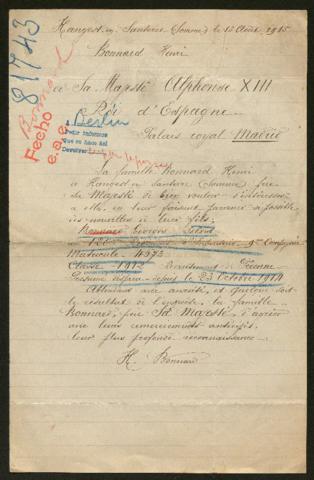 Hangest en Santerre (Somme) le 15 Août 1915
Bonnard Henri
81743
à Sa Majesté Alphonse XIII
Roi d'Espagne
Palais royal Madrid
Fecho
e.a.e.
a Berlin
La famille Bonnard Henri
à Hangest en Santerre (Somme) prie
Sa Majesté de bien vouloir s'intéresser
à elle, en leur faisant parvenir si possible,
des nouvelles de leur fils:
Bonnard
9e Compagnie
Matricule 4973
Classe 1912 Recrutement de Péronne
Octobre 1914
Attendant avec anxiété, et quelque soit
le résultat de l'enquête, la famille
Bonnard, prie Sa Majesté, d'agréer
avec leurs remerciements anticipés,
leur plus profonde reconnaissance.
H. Bonnard